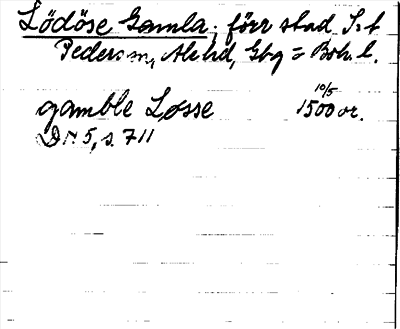 Lödöse Gamla, förr stad S:t
Peders sn, Ale hd, Gbg o Boh. l.
10/5
gamble Løsse 1500 or.
DN 5, s. 711